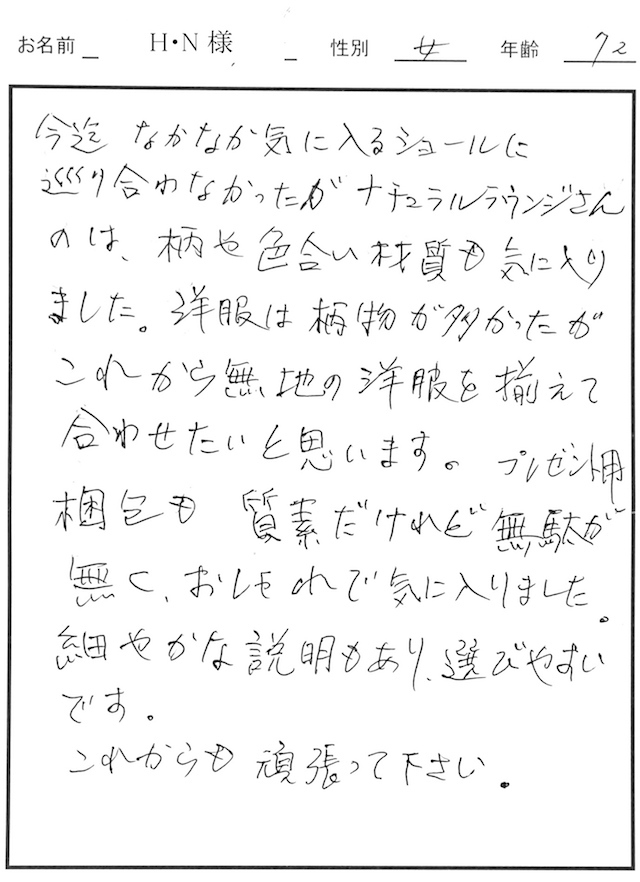 お名前 H・N 様 性別 女 年齢 72
今迄 なかなか気に入るショールに
巡り合わなかったが ナチュラルラウンジさん
のは、柄や色合い材質も気に入り
ました。洋服は柄物が多かったが
これから無地の洋服を揃えて
合わせたいと思います。プレゼント用
梱包も 質素だけれど無駄が
無く、おしゃれで気に入りました。
細やかな説明もあり、選びやすい
です。
これからも 頑張って下さい。